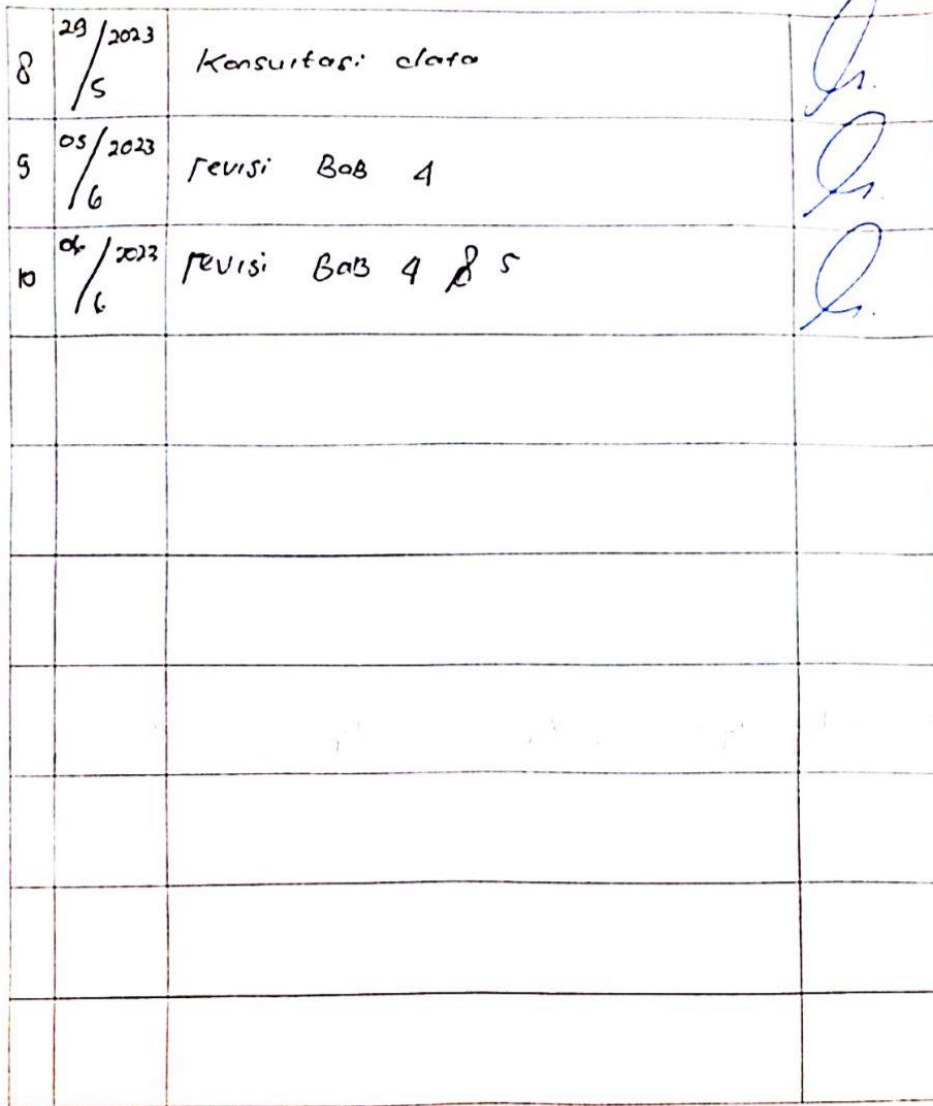 8 29/5 2023 Konsultasi data
9 05/6 2023 revisi BaB 4
10 /6 2023 revisi BaB 4 & 5